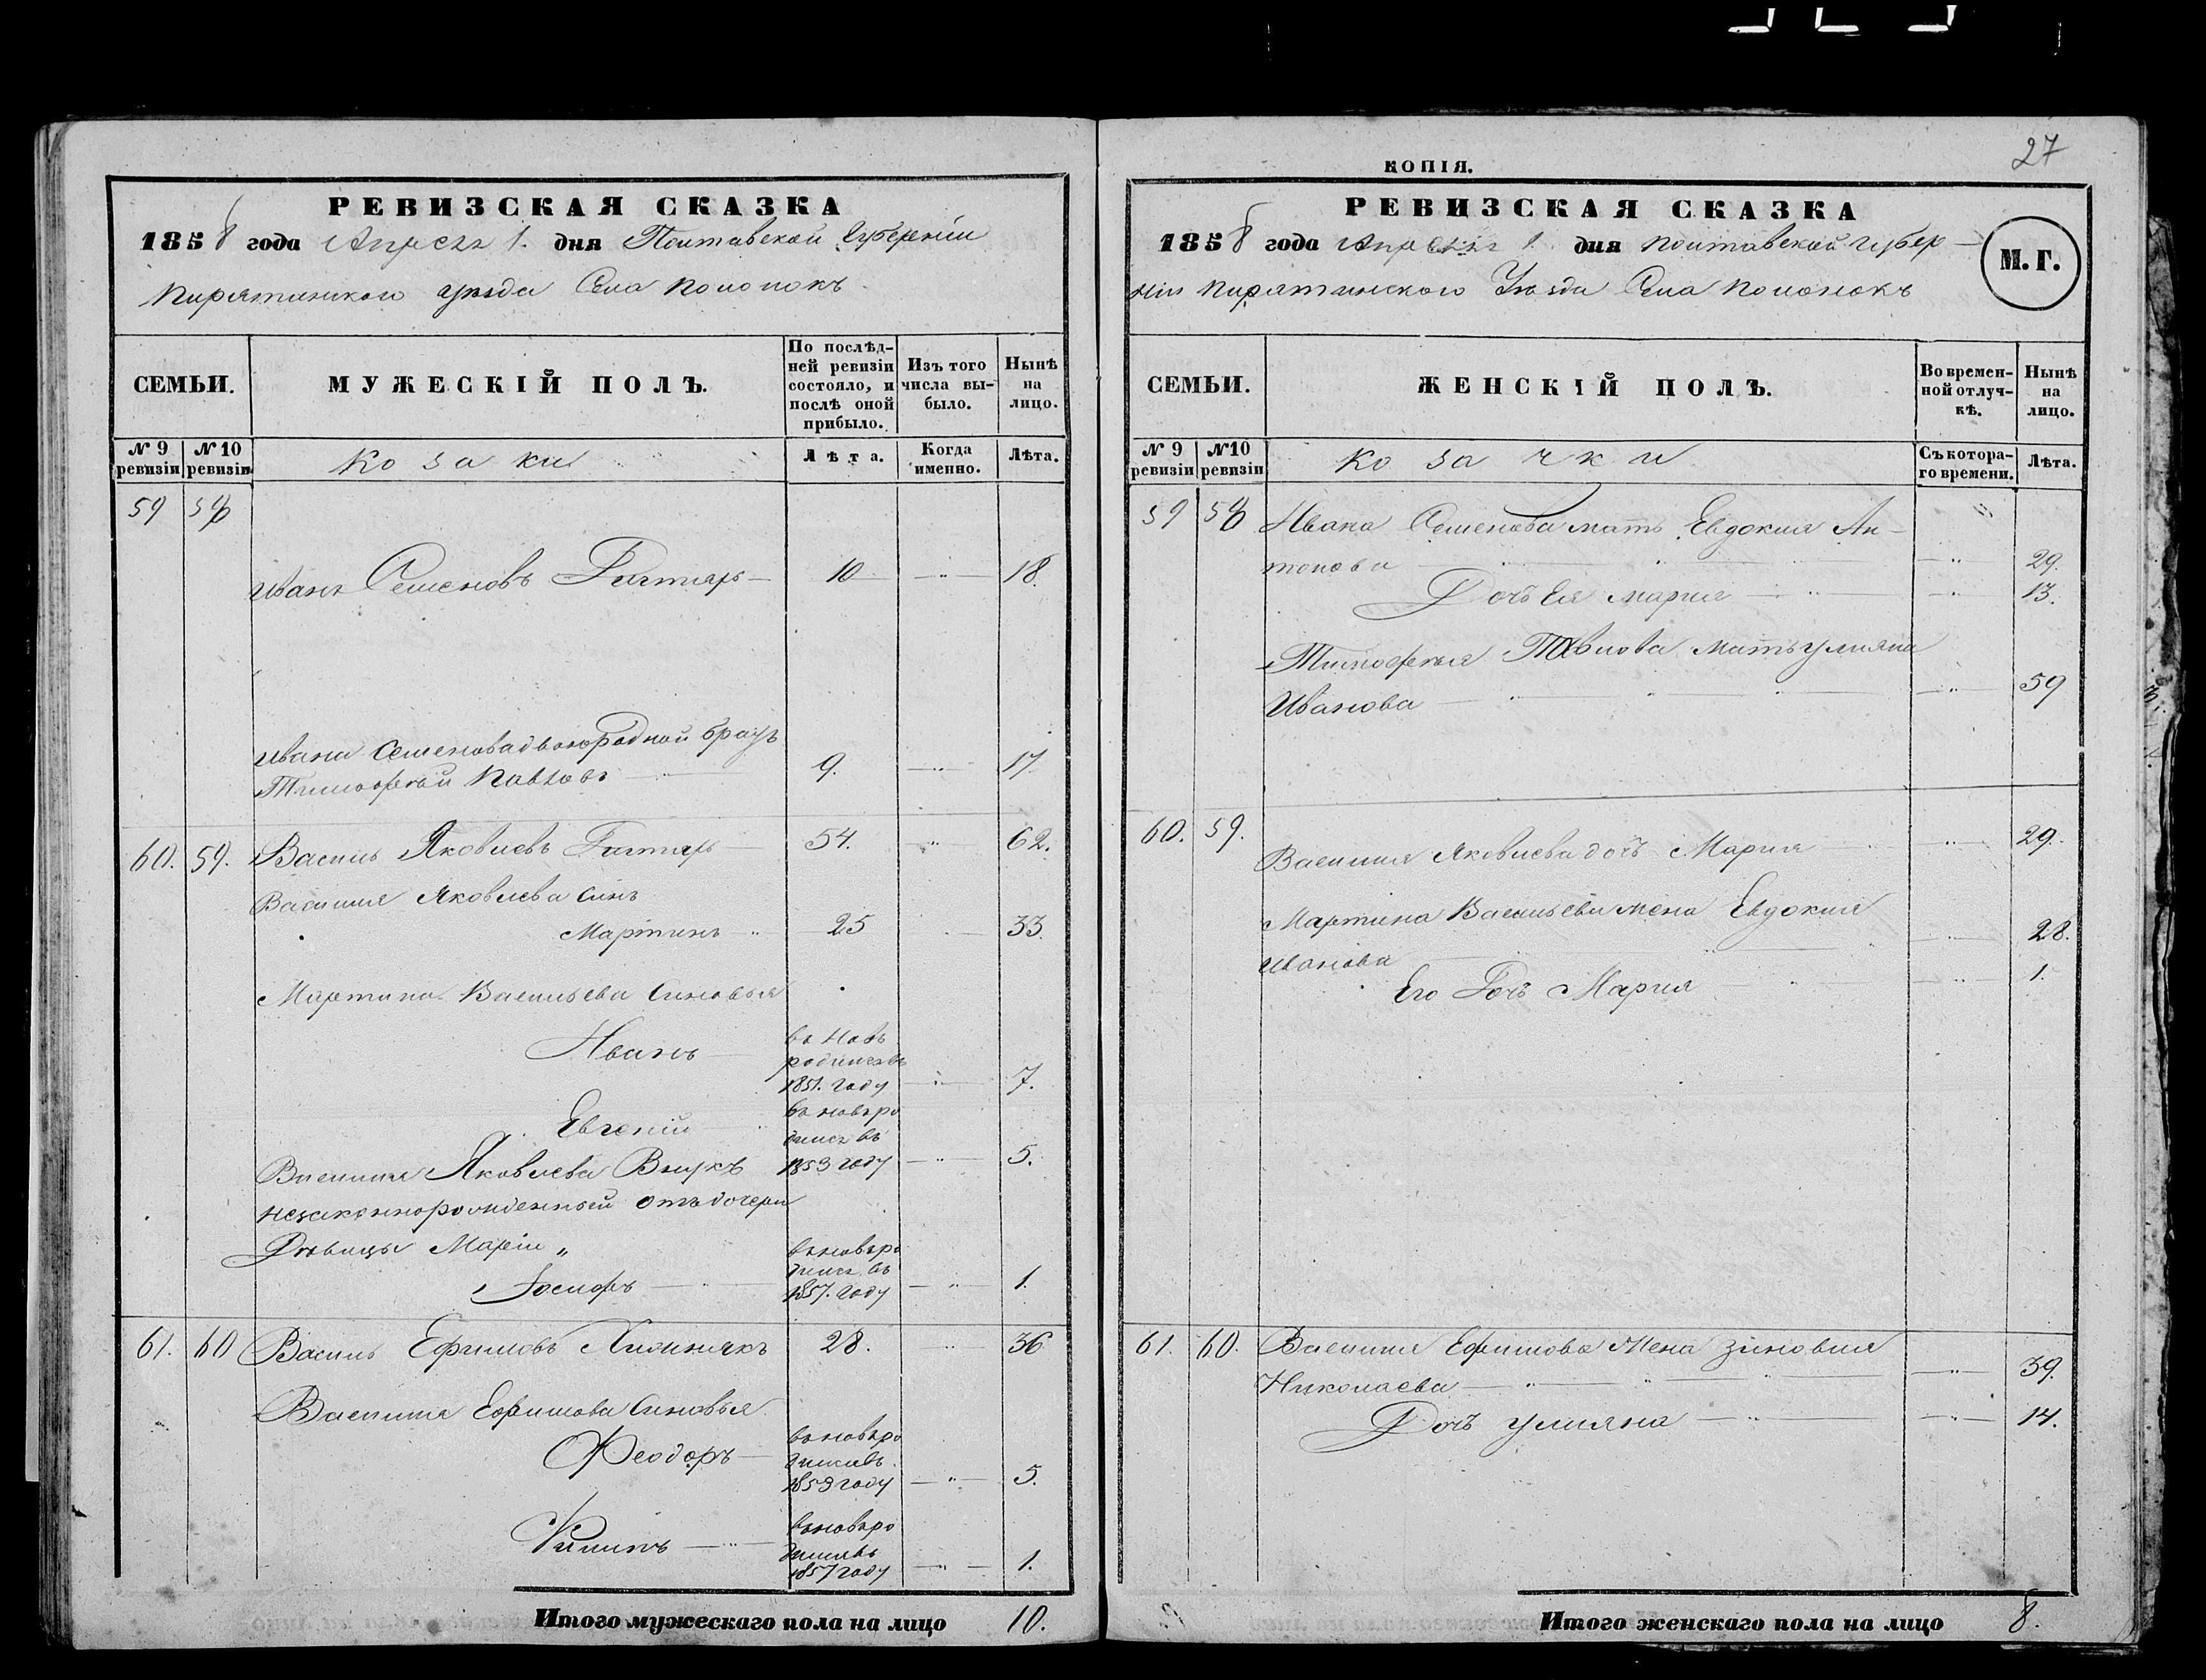 РЕВИЗСКАЯ СКАЗКА
1858 года Апреля 1. дня Полтавской Губерніи
Пирятинскаго уезда Села Полонокъ
СЕМЬИ.
МУЖЕСКІЙ ПОЛЪ.
По послѣд-
ней ревизіи
состояло, и
послѣ оной
прибыло.
Изъ того
числа вы-
было.
Нынѣ
на
лицо.
№ 9 ревизіи
№ 10 ревизіи
Козаки
Лѣта.
Когда именно.
Лѣта.
59 58
Иванъ Семеновъ — 10 — 18.
Ивана Семенова двоюродной братъ
Тимофей Павловъ — 9. — 17.
60. 59. Василь Яковлевъ — 54. 62.
Василия Яковлева сынъ
Мартинъ 25 33.
Мартина Васильева сыновья
Иванъ
въ новь
родился въ
1851. году — 7.
Евгеній
въ новь ро
дился въ
1853 году — 5.
Василия Яковлева Внукъ
незаконнорожденный отъ дочери
Дѣвицы Маріи „
Іосифъ
въ новь ро
дился въ
1857. году — 1.
61. 60 Василь Ефимовъ 28. 36
Василия Ефимова сыновья
Феодоръ
въ новь ро
дился въ
1853 году — 5.
Филипъ
въ новь ро
дился въ
1857 году — 1.
Итого мужескаго пола на лицо 10.
27
КОПІЯ.
РЕВИЗСКАЯ СКАЗКА
1858 года Апреля 1 дня Полтавской Губер-
ніи Пирятинского Уезда Села Полонокъ
М. Г.
СЕМЬИ.
ЖЕНСКІЙ ПОЛЪ.
Во времен-
ной отлуч-
кѣ.
Нынѣ
на
лицо.
№ 9 ревизіи
№ 10 ревизіи
Козачки
Съ котора-
го времени.
Лѣта.
59 58 Ивана Семенова мать Евдокия Ан-
тонова 29.
Дочь Ея Мария 13.
Тимофея Павлова мать Улияна
Иванова 59
60. 59. Василия Яковлева дочь Мария 29.
Мартина Васильева жена Евдокия
Иванова 28.
Его Дочь Мария 1.
61. 60. Василия Ефимова Жена Зиновия
Николаева 39.
Дочь Улияна 14.
Итого женскаго пола на лицо 8.